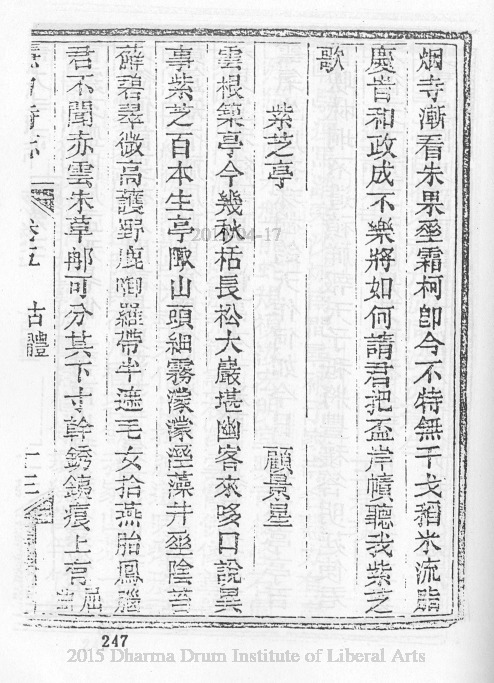 烟寺漸看朱果垂霜柯卽今不特無干戈稻米流脂
慶昔和政成不樂將如何請君把盃岸幘聽我紫芝
歌
紫芝亭 顧景星
雲根築亭今幾秋栝長松大巖堪幽客來哆口說異
事紫芝百本生亭陬山頭細霧濛濛溼藻井垂陰苔
蘚碧翠微高護野鹿啣羅帶半遮毛女拾燕胎鳳腦
君不聞赤雲朱草那可分其下寸幹銹鐵痕上有屈
卷五 古體
247
2015-04-17
2015 Dharma Drum Institute of Liberal Arts